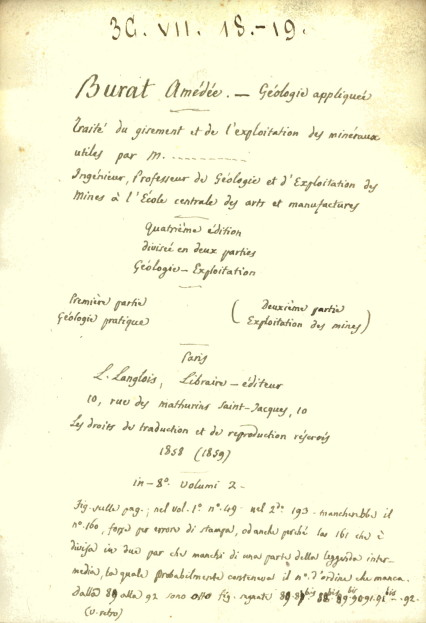 3G. VII. 18.-19.
Burat Amédée. — Géologie appliquée
Traité du gisement et de l'exploitation des minéraux
utiles par M. ----------
Ingénieur, Professeur de Géologie et d'Exploitation des
Mines à l'École centrale des arts et manufactures
Quatrième édition
divisée en deux parties
Géologie – Exploitation
Première partie
Géologie pratique
(Deuxième partie
Exploitation des mines)
Paris
L. Langlois, Libraire – éditeur
10, rue des mathurins Saint-Jacques, 10
Les droits de traduction et de reproduction réservés
1858 (1859)
in-8°. Volumi 2-
Fig. nelle pag.; nel vol. 1° n° 49 nel 2do 193 - mancherebbe il
n° 160, forse per errore di stampa, od anche perché la 161 che è
divisa in due par che manchi di una parte della leggenda inter-
media, la quale probabilmente conteneva il n° d'ordine che manca.
dalla 89 alla 92 sono otto fig. segnate
(V. retro)